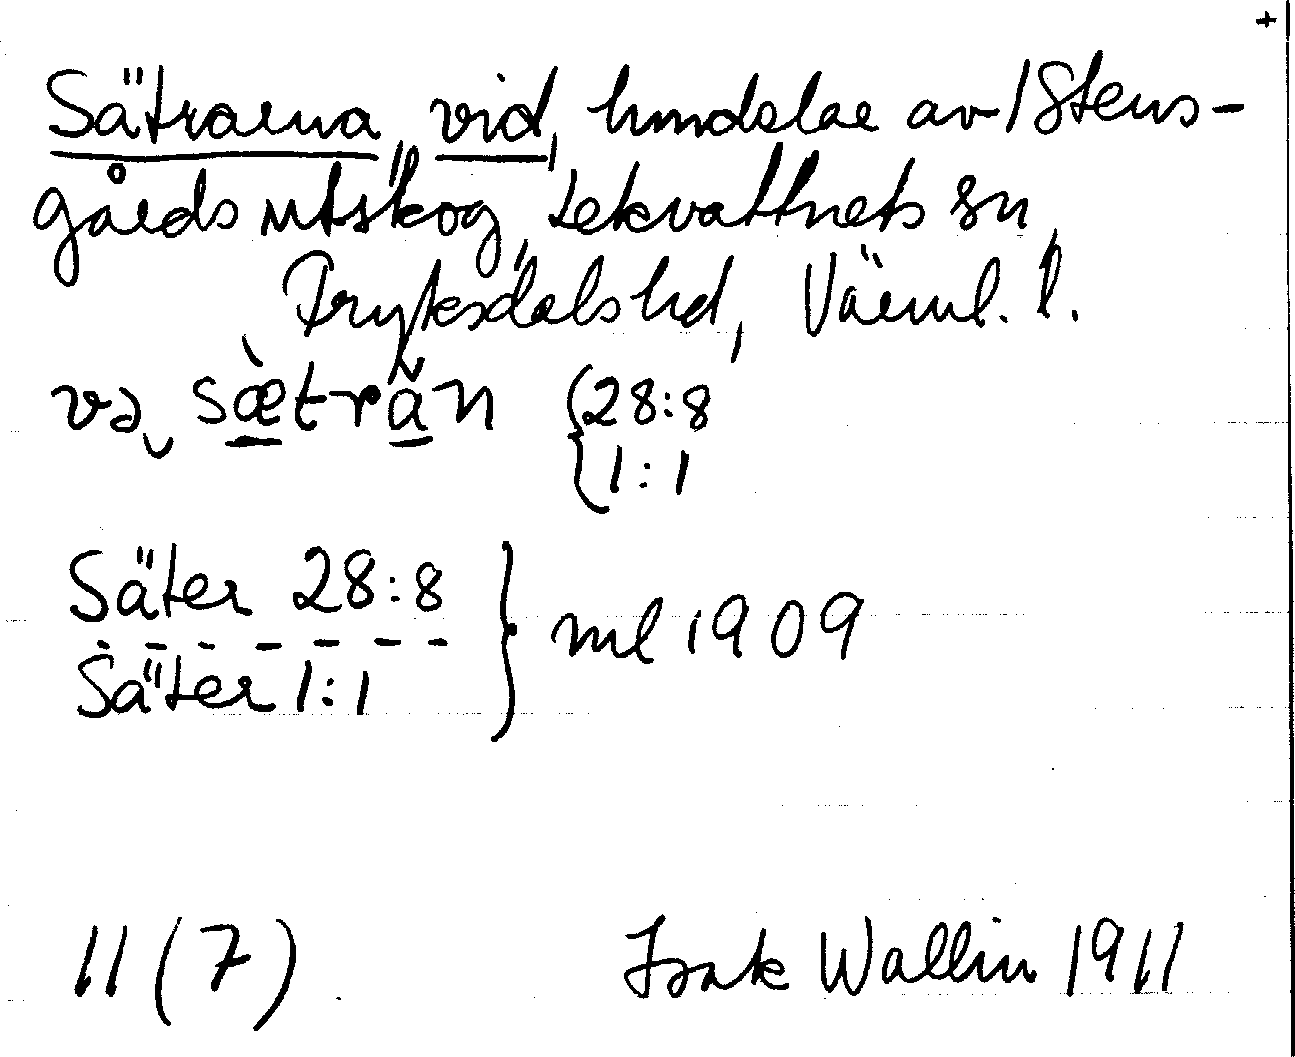 +
Sätrarna vid, hmdelar av 1 Stens-
gårds utskog, Lekvattnets sn,
Fryksdals hd, Värml. l.
və sæ̀trăn {28:8
1:1
Säter 28:8
Säter 1:1 } ml 1909
11 (7) Isak Wallin 1911